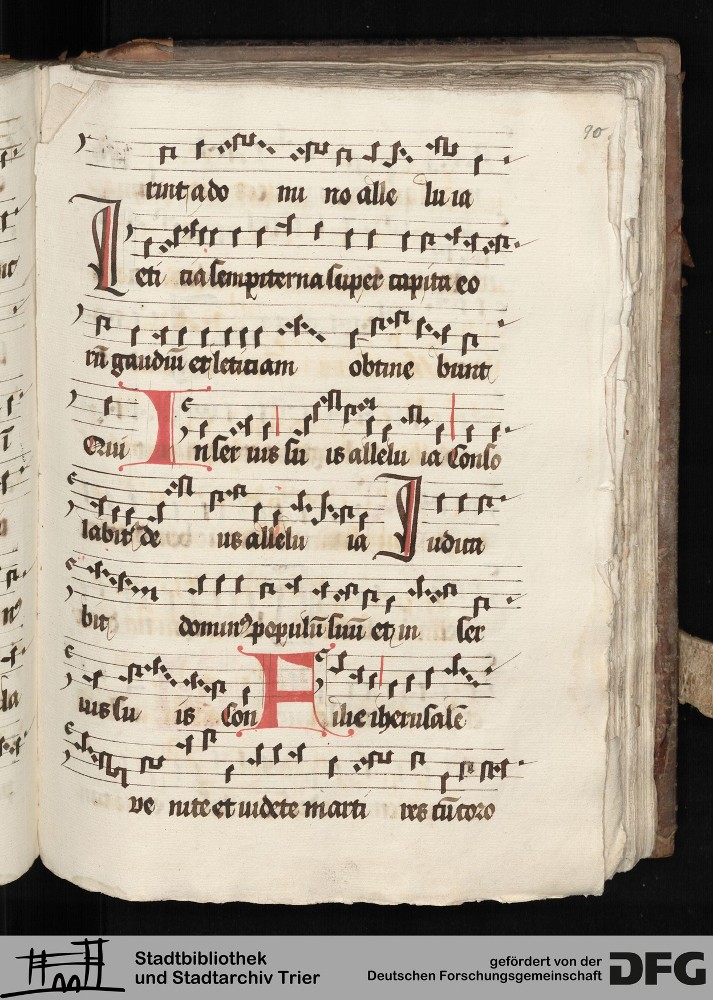 90
runt ado nu no alle lu ia
Leti cia sempiterna super capita eo
rū gaudiū et leticiam obtine bunt
Qui In ser uis su is allelu ia Conso
labit de us allelu ia Iudica
bit domin⁹ populū suū et in ser
uis su is Con Filie iherusalē
ve nite et uidete marti res cū coro
Stadtbibliothek
und Stadtarchiv Trier
gefördert von der
Deutschen Forschungsgemeinschaft
DFG